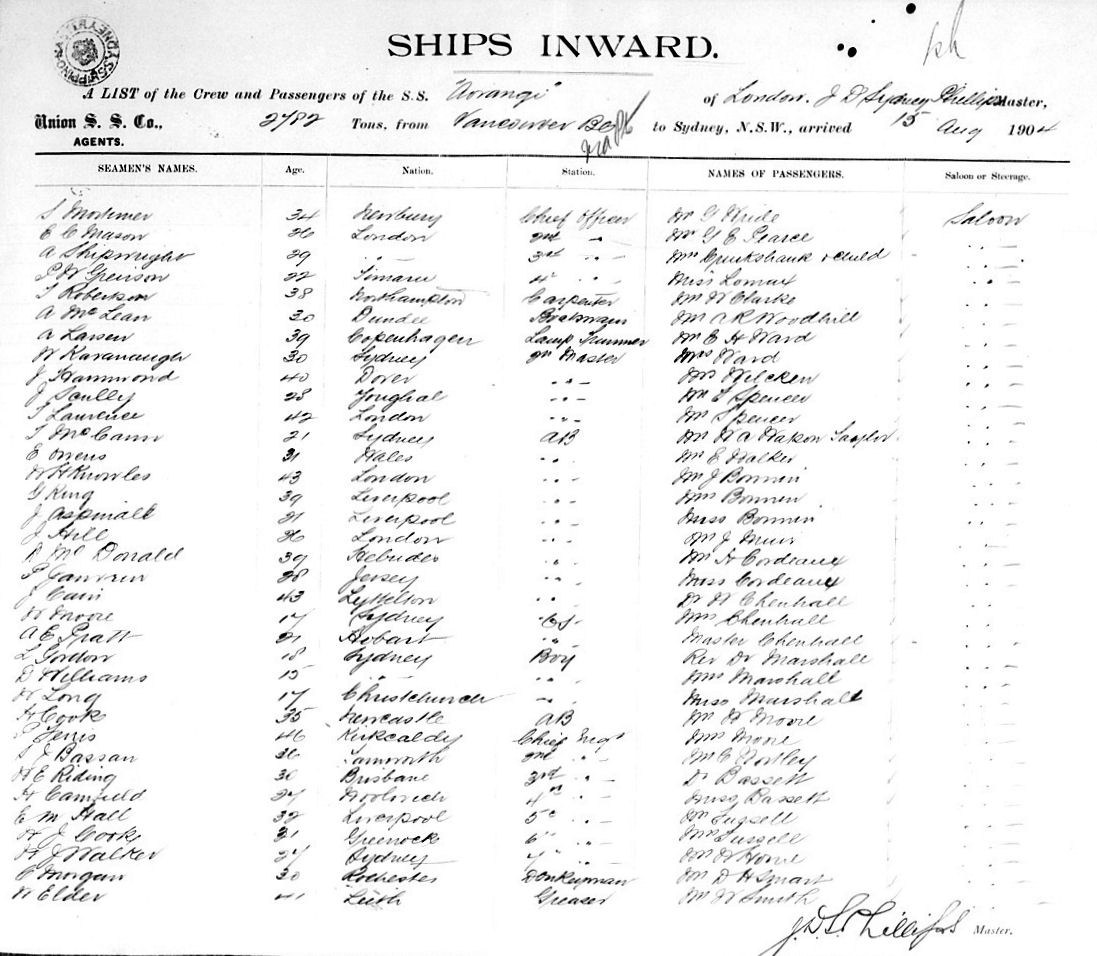 SHIPS INWARD.
A LIST of the Crew and Passengers of the S.S. "Aorangi" of London, J D Sydney Phillips Master,
Union S. S. Co., AGENTS. 2782 Tons, from Vancouver to Sydney, N.S.W., arrived 15 Aug 1904
SEAMEN'S NAMES. Age. Nation. Station. NAMES OF PASSENGERS. Saloon or Steerage.
S Mortimer 34 Newbury Chief Officer Mr G Hride Saloon
E C Mason 26 London 2nd " Mr G E Pearce " "
A Shipwright 29 " " 3rd " Mrs Cruikshank & child " "
P W Grierson 22 Timaru 4 " Miss Lomax " "
T Robertson 38 Northampton Carpenter Mr W Clarke " "
A McLean 30 Dundee Boatswain Mr A R Woodhill " "
A Larsen 39 Copenhagen Lamp Trimmer Mr E H Ward " "
W Kavanaugh 30 Sydney Qr Master Mrs Ward " "
J Hammond 40 Dover " " Mr Wilcken " "
J Scully 28 Youghal " " Mr S Spencer " "
T Laurence 42 London " " Mr Spencer " "
T McCann 21 Sydney AB Mr W A Watson Taylor " "
E Owens 31 Wales " " Mr E Walker " "
W H Knowles 43 London " " Mr J Bonnin " "
G King 39 Liverpool " " Mrs Bonnin " "
J Aspinall 21 Liverpool " " Miss Bonnin " "
J Hill 26 London " " Mr J Muir " "
D McDonald 39 Hebrides " " Mr H Cordeaux " "
P 28 Jersey " " Miss Cordeaux " "
J Cain 43 Lyttelton " " Dr W Chenhall " "
W Moore 17 Sydney OS Mrs Chenhall " "
A E Pratt 21 Hobart " " Master Chenhall " "
L Gordon 18 Sydney Boy Rev Dr Marshall " "
D Williams 15 " " " " Mrs Marshall " "
W Long 17 Christchurch " " Miss Marshall " "
H Cook 35 Newcastle AB Mr H Moore " "
P 46 Kirkcaldy Chief Engr Mrs Moore " "
S J Bassan 36 Tamworth 2nd " Mr C Nortley " "
H E Riding 30 Brisbane 3rd " Dr Bassett " "
H Camfield 27 Woolwich 4th " Miss Bassett " "
E M Hall 32 Liverpool 5th " Mr " "
H J Cook 31 Greenock 6 " Mrs " "
H J Walker 27 Sydney 7 " Mr W Horne " "
C Morgan 30 Rochester Donkeyman Mr D H Smart " "
W Elder 41 Leith Greaser Mr W Smith " "
J. D. S. Phillips Master.